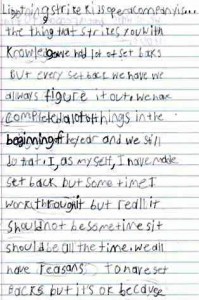 Lightning strike kids opera company is...
the thing that strikes you with
Knowledge we had lot of set backs
But every set back we have we
always figure it out. we have
completed alot of things in the
beginning of the year and we still
do that. I, as my self, I have made
set back but some time I
work throught but reall it
should not be some time sit
should be all the time. we all
have reasons to have set
backs but it's ok because